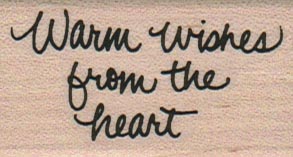 Warm wishes
from the
heart